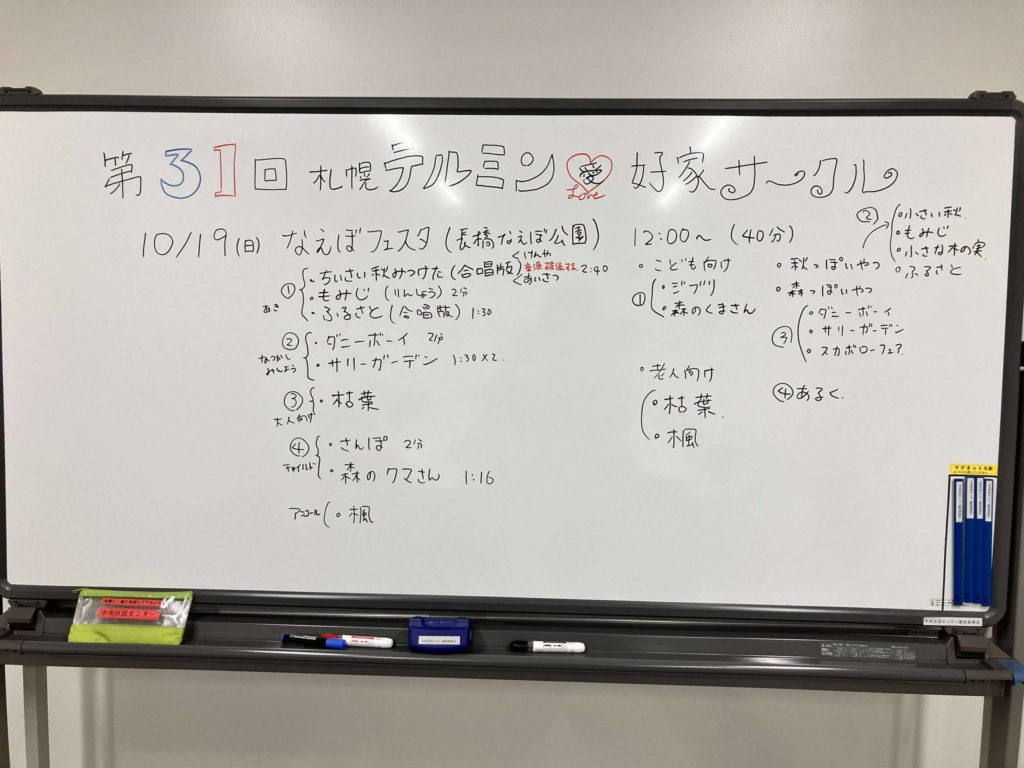 第31回 札幌テルミン愛好家サークル
Love
10/19(日) なえぼフェスタ (長橋なえぼ公園) 12:00〜 (40分)
① あき
・ちいさい秋みつけた (合唱版) 2:40
けんや
あいさつ
・もみじ (りんしょう) 2分
・ふるさと (合唱版) 1:30
② なつかし みんよう
・ダニーボーイ 2分
・サリーガーデン 1:30×2.
③ 大人向け
・枯葉
④ チャイルド
・さんぽ 2分
・森のクマさん 1:16
アンコール
・楓
・こども向け
①
・ジブリ
・森のくまさん
・老人向け
・枯葉
・楓
・秋っぽいやつ
②
・小さい秋
・もみじ
・小さな木の実
・ふるさと
・森っぽいやつ
③
・ダニーボーイ
・サリーガーデン
・スカボローフェア
④あるく.
マグネット4本
中央区民センター